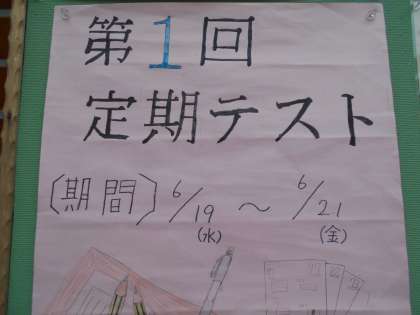 第1回
定期テスト
〔期間〕6/19〜6/21
(水) (金)